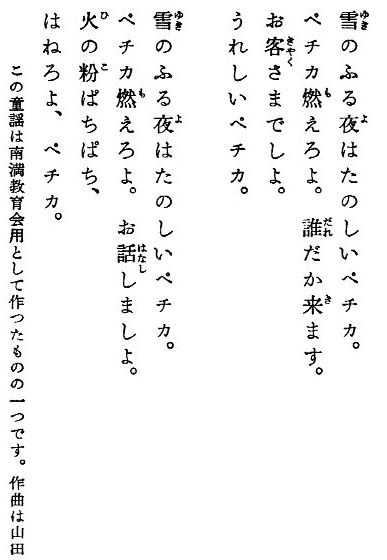 雪のふる夜はたのしいペチカ。
ペチカ燃えろよ。誰だか来ます。
お客さまでしよ。
うれしいペチカ。
雪のふる夜はたのしいペチカ。
ペチカ燃えろよ。お話しましよ。
火の粉ぱちぱち、
はねろよ、ペチカ。
この童謡は南満教育会用として作つたものの一つです。作曲は山田